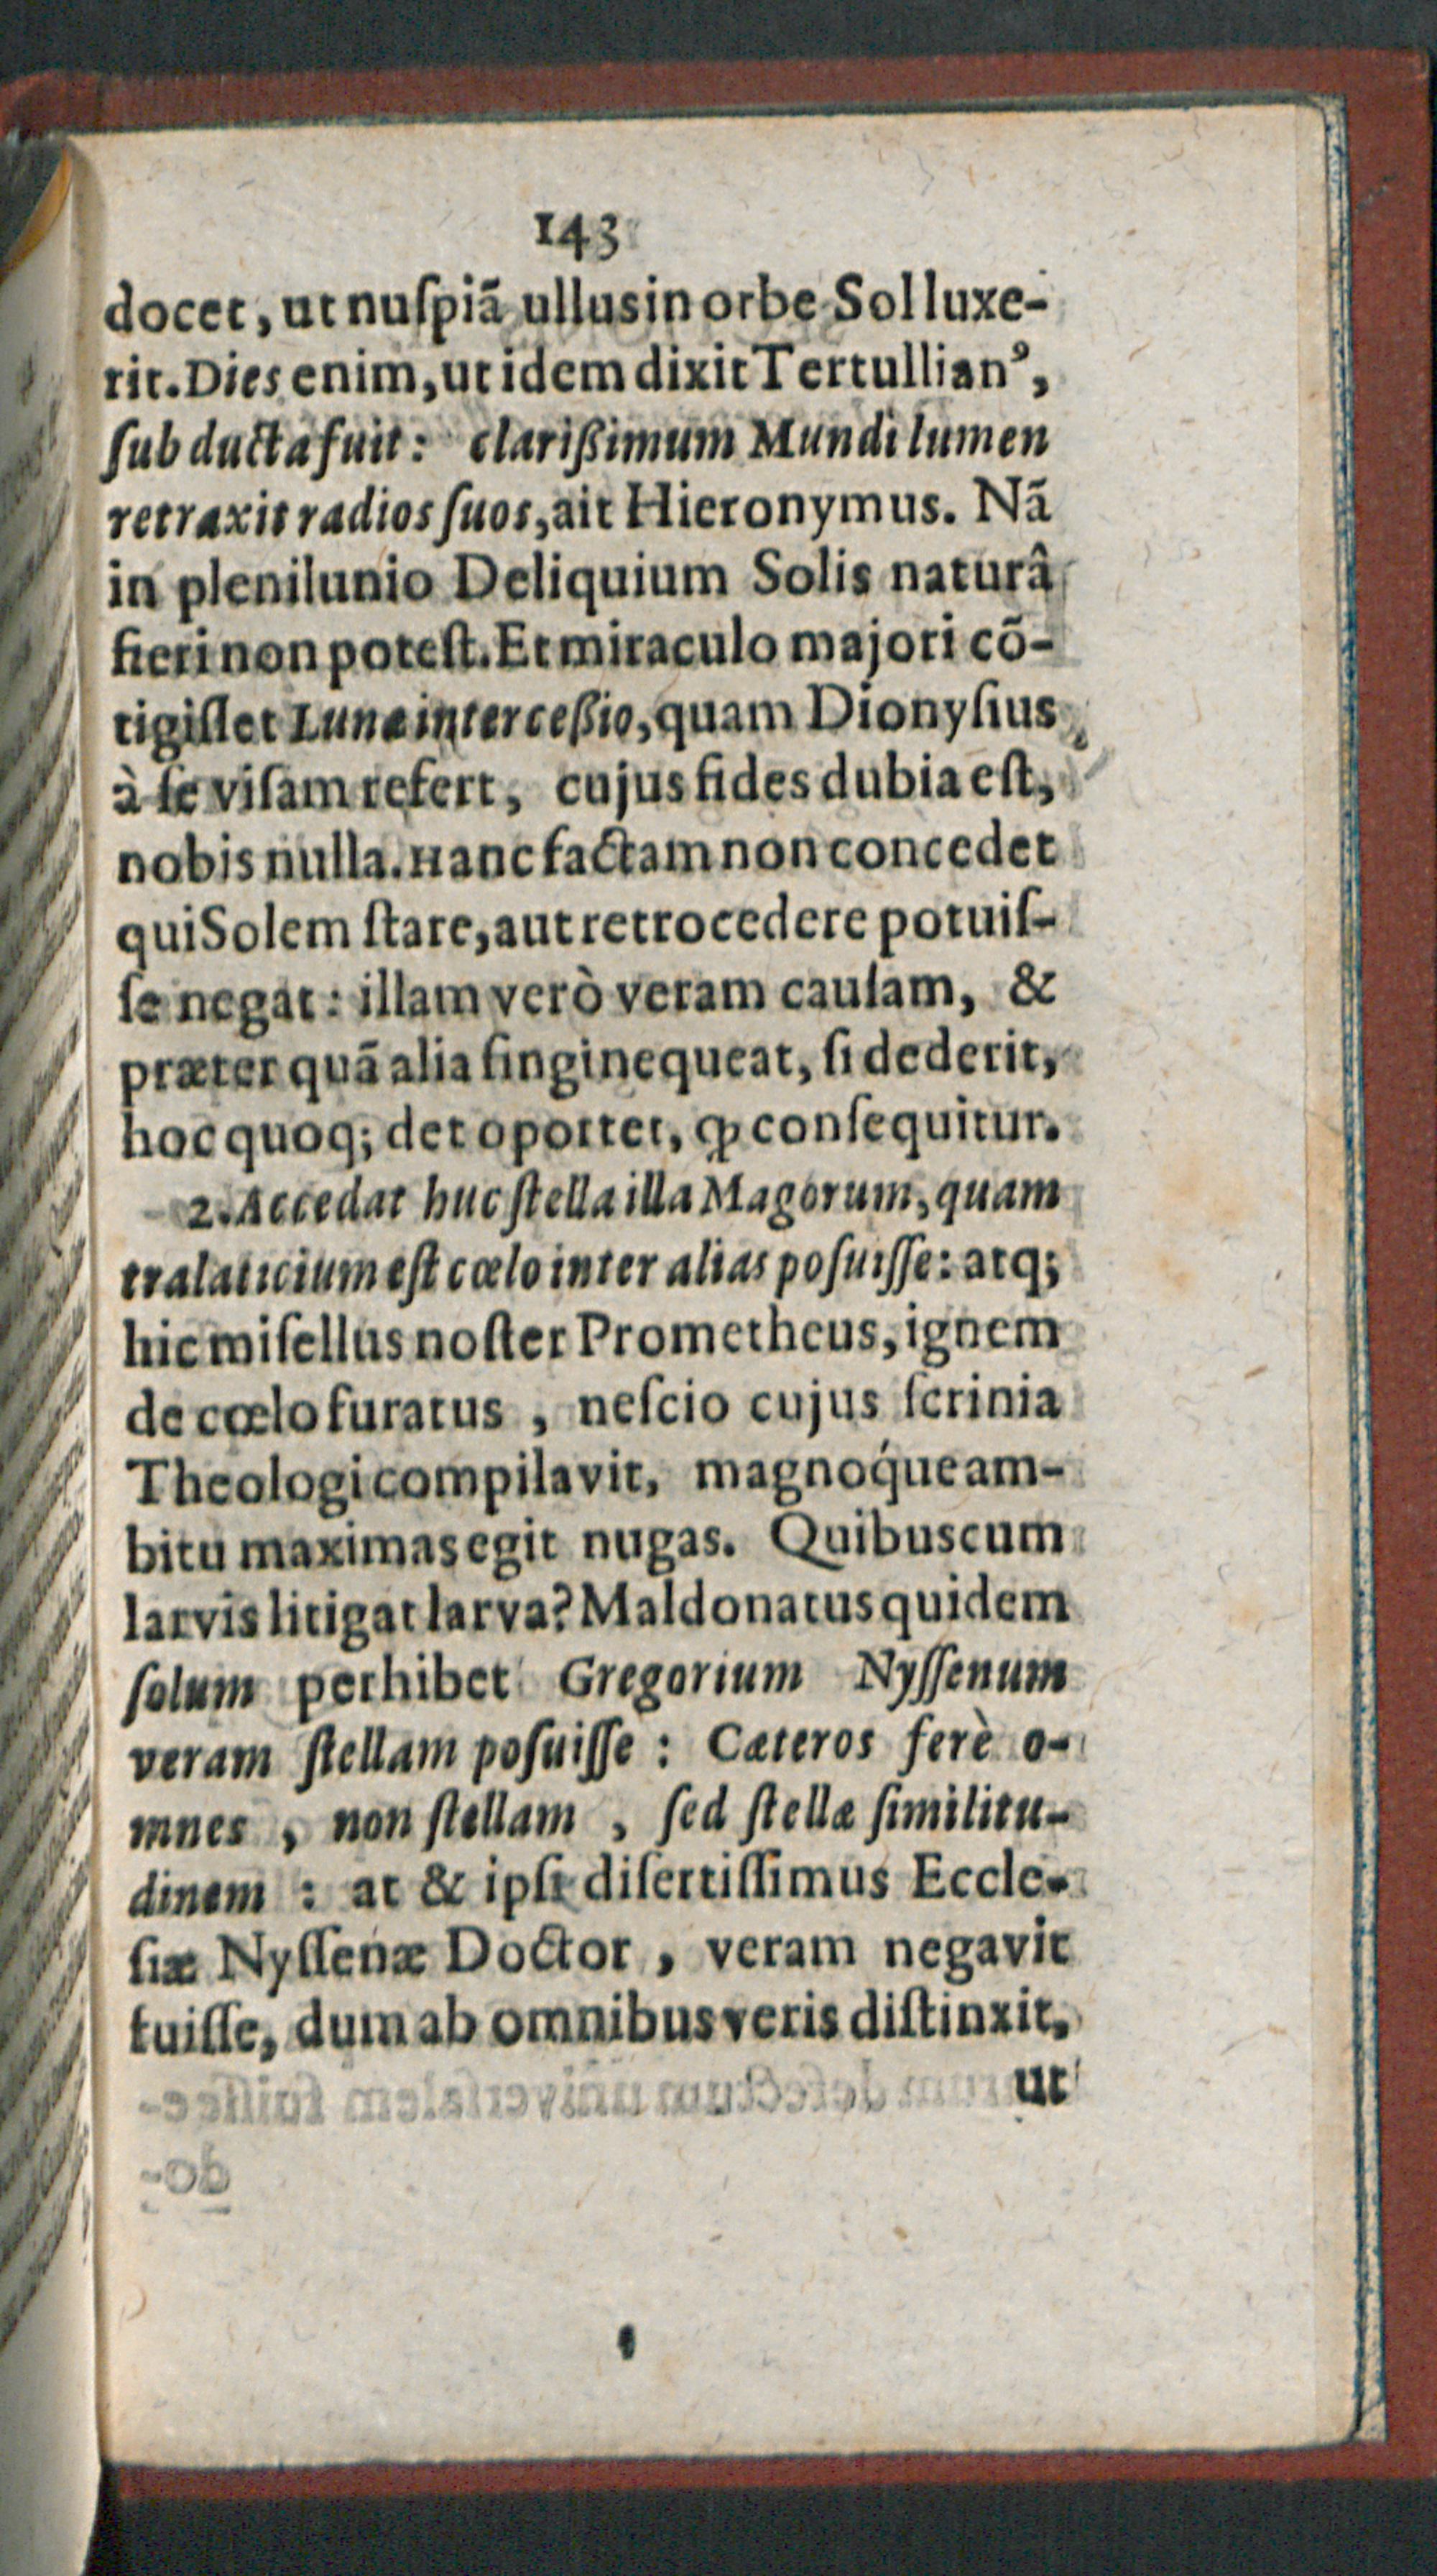 143
docet, ut nuſpiã ullus in orbe Sol luxe-
rit. Dies enim, ut idem dixit Tertullianꝰ,
ſubducta fuit: clarißimum Mundi lumen
retraxit radios ſuos, ait Hieronymus. Nã
in plenilunio Deliquium Solis naturâ
fieri non poteſt. Et miraculo majori cõ-
tigiſſet Lunæ interceßio, quam Dionyſius
à ſe viſam refert, cujus fides dubia eſt,
nobis nulla. Hanc factam non concedet
qui Solem ſtare, aut retrocedere potuiſ-
ſe negat: illam verò veram cauſam, &
præter quã alia fingi nequeat, ſi dederit,
hoc quoq; det oportet, ꝙ conſequitur.
2. Accedat huc ſtella illa Magorum, quam
tralaticium eſt cœlo inter alias poſuiſſe: atq;
hic miſellus noſter Prometheus, ignem
de cœlo furatus, neſcio cujus ſcrinia
Theologi compilavit, magnoq́ue am-
bitu maximas egit nugas. Quibuscum
larvis litigat larva? Maldonatus quidem
ſolum perhibet Gregorium Nyſſenum
veram ſtellam poſuiſſe: Cæteros ferè o-
mnes, non ſtellam, ſed ſtellæ ſimilitu-
dinem: at & ipſi diſertiſſimus Eccle-
ſiæ Nyſſenæ Doctor, veram negavit
fuiſſe, dum ab omnibus veris diſtinxit,
ut